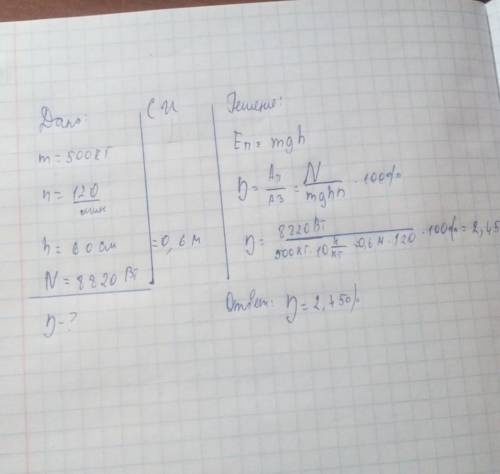 Дано:
m = 500 кг
n = 120/мин
h = 60 см
N = 8820 Вт
η - ?
СИ
= 0,6 м
Решение:
Eп = mgh
η = Aп/Aз = N/mghn · 100%
η = 8820 Вт/500 кг · 10 Н/кг · 0,6 м · 120 · 100% = 2,45
Ответ: η = 2,45%